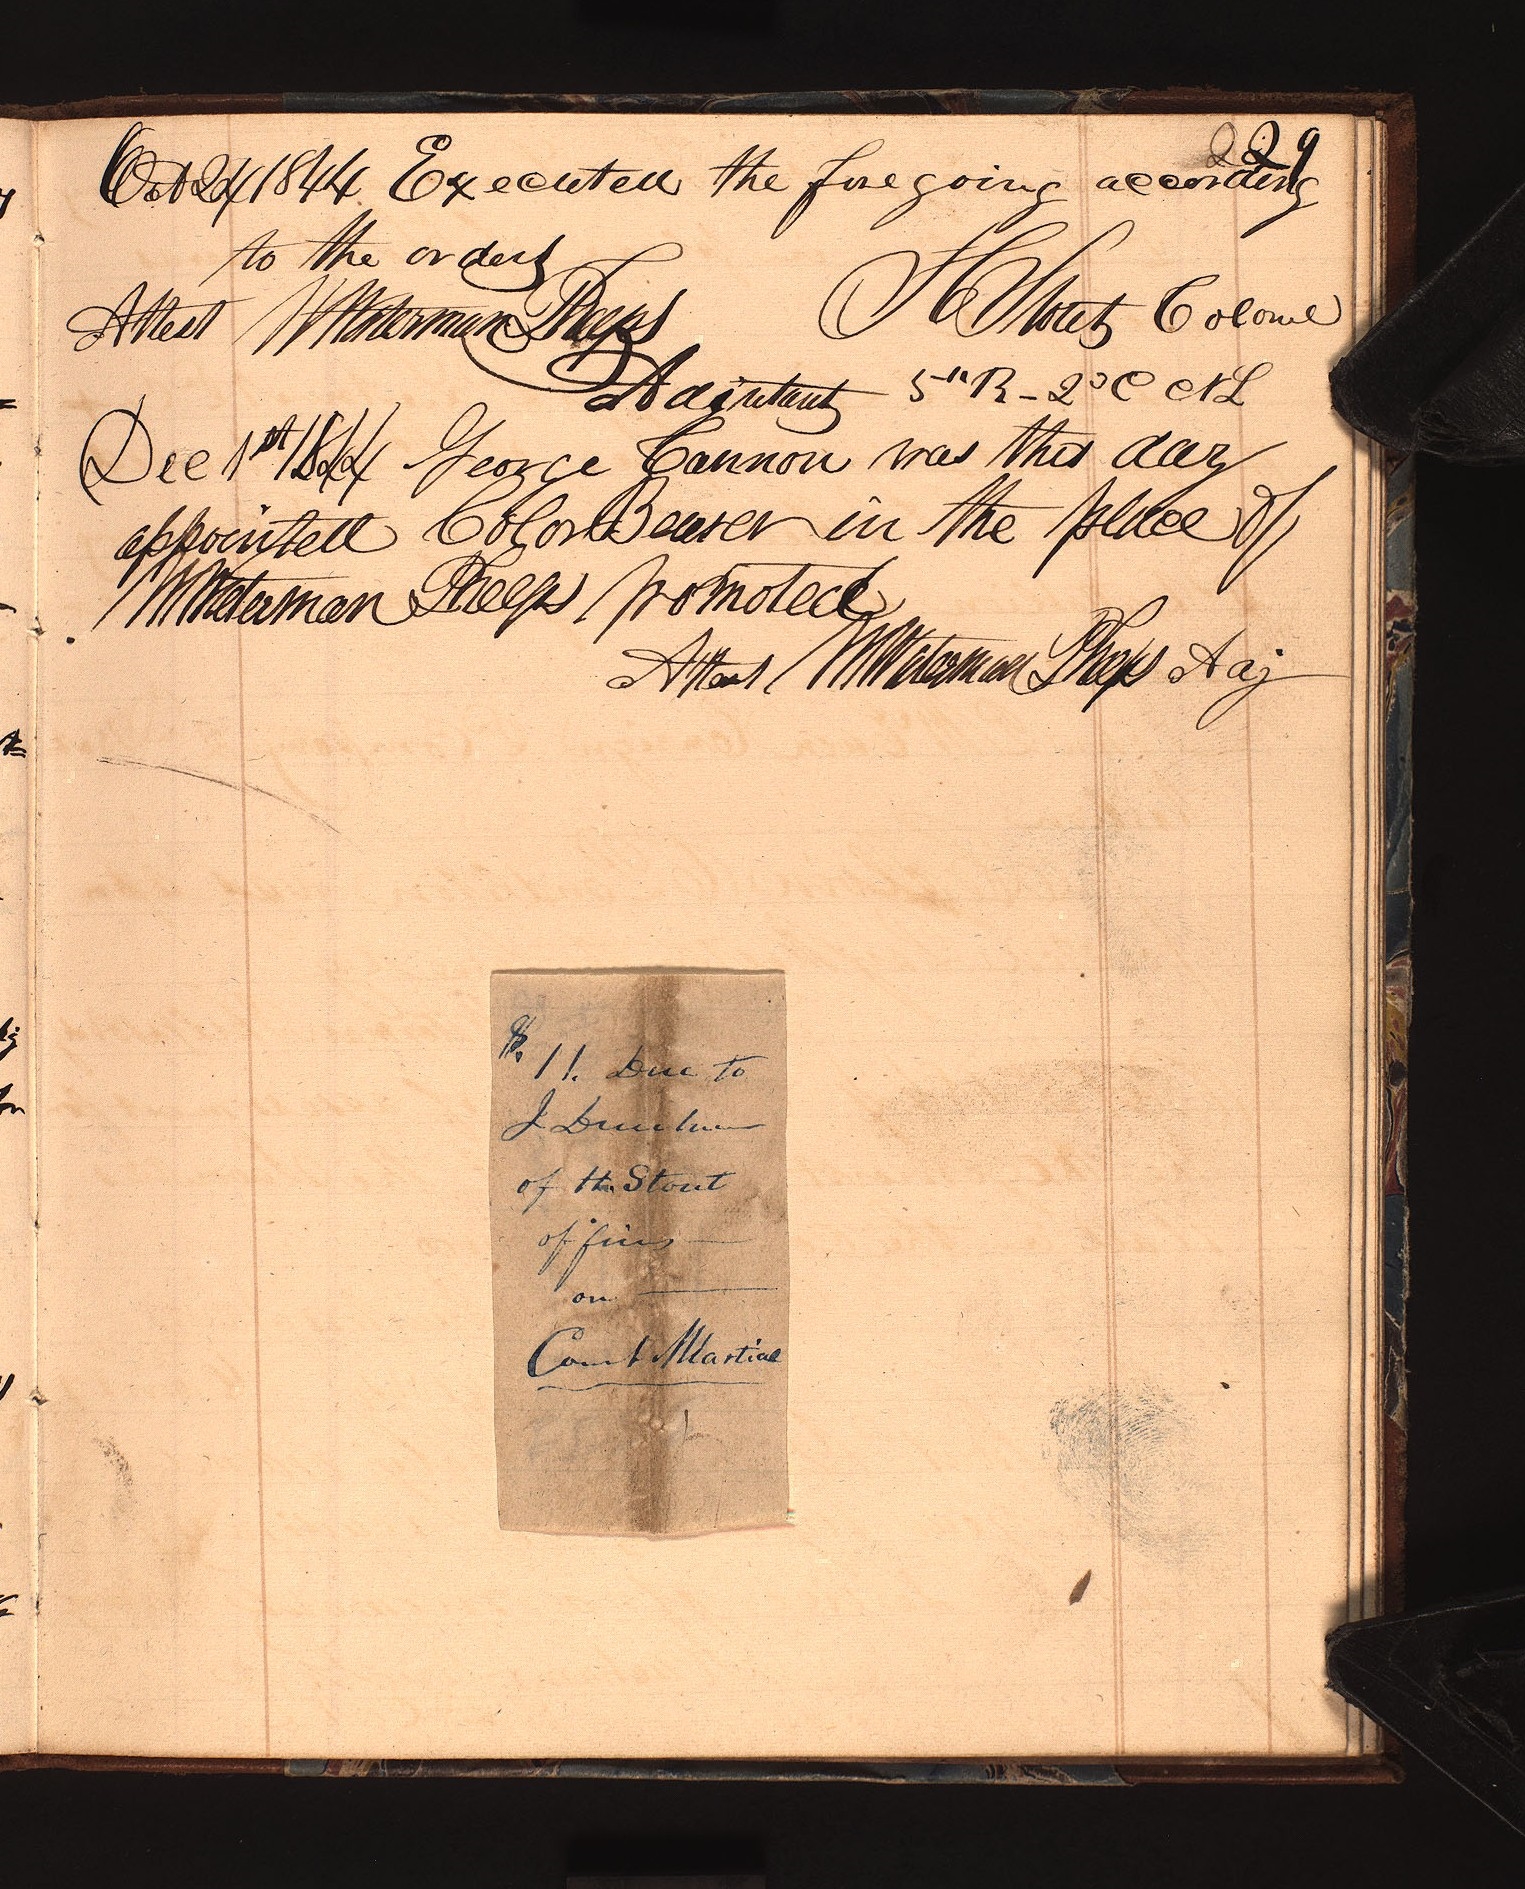 229
Oct 24 1844 Executed the foregoing according
to the orders
Attest W Waterman Phelps H Stout Colonel
Adjutant 5th R - 2d C N L
Dec 1st 1844 George Cannon was this day
appointed Color Bearer in the place of
W Waterman Phelps promoted
Attest W Waterman Phelps Adj
$. 11. Due to
J Dunham
of H. Stout
of fines
on
Court Martial